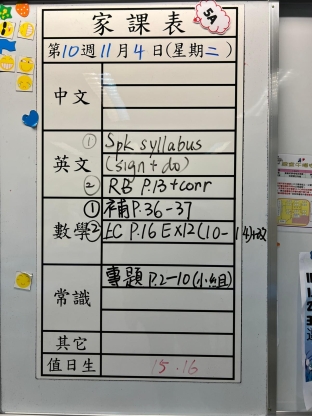 家課表
5A
第10週11月4日(星期二)
中文
英文
① Spk syllabus
(sign + do)
② RB P.13 + corr
數學
① 補 P.36-37
② 上C P.16 EX12 (10-14)+改
常識
專題 P.2-10 (小組)
其它
值日生
15.16